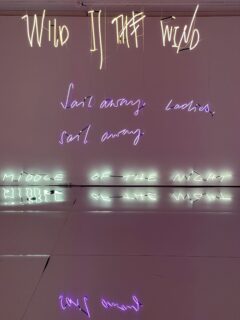 WILD IS THE WIND
Sail away, Ladies,
sail away.
MIDDLE OF THE NIGHT